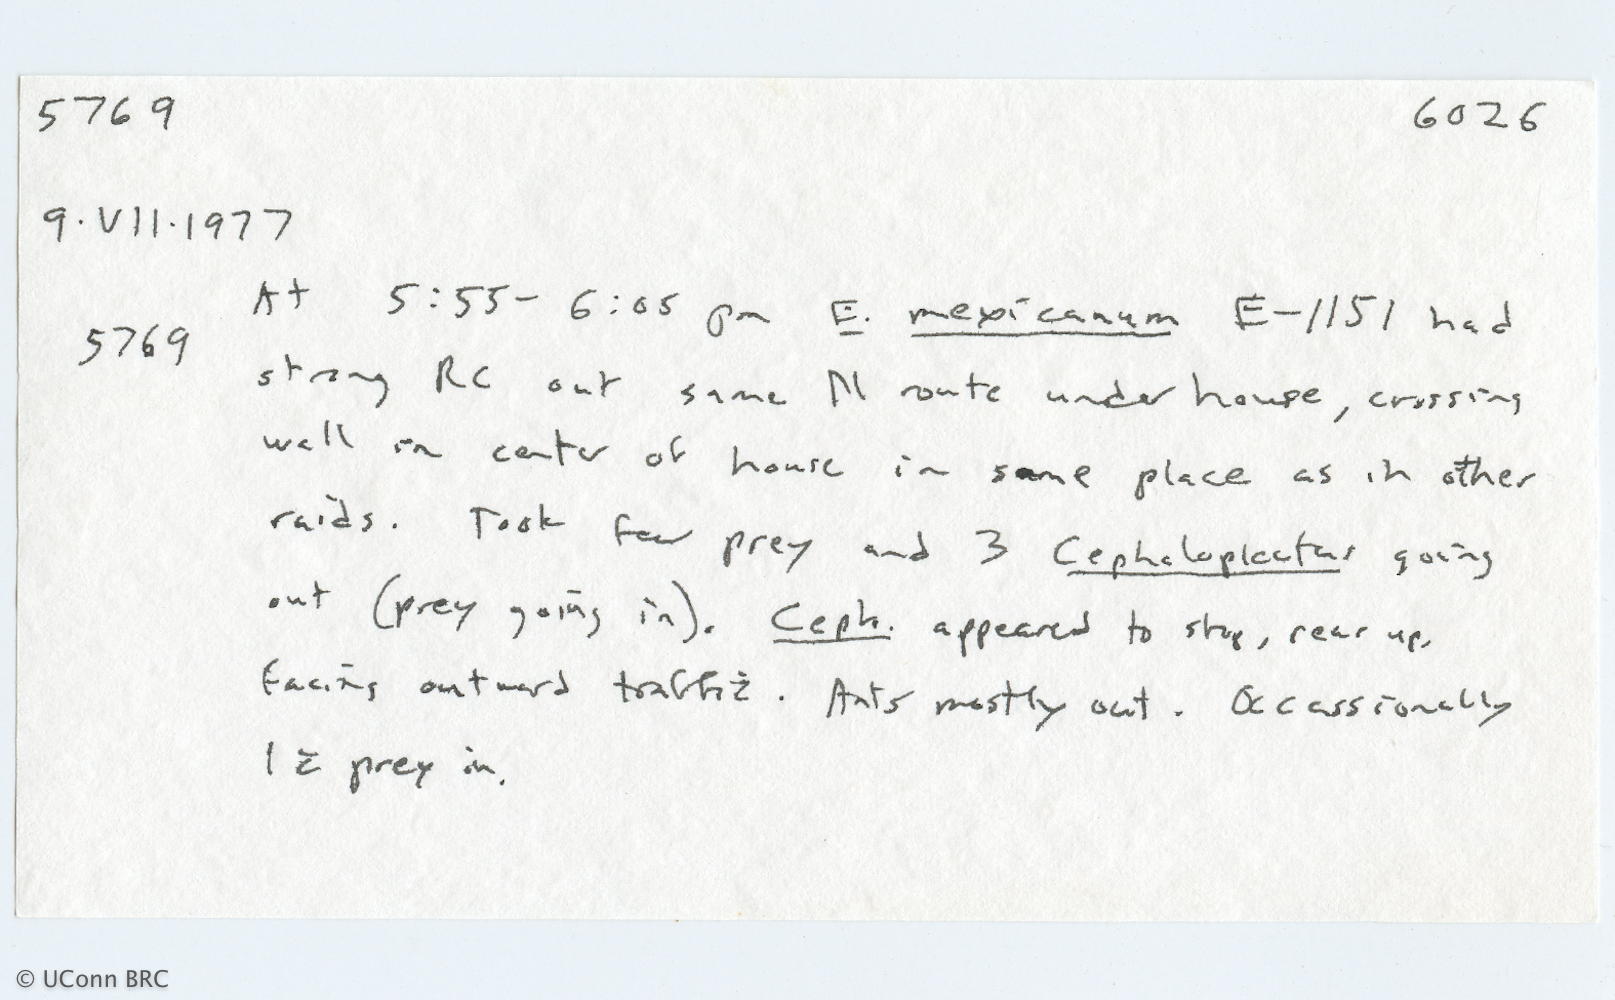 5769 6026
9.VII.1977
At 5:55- 6:05 pm E. mexicanum E-1151 had
5769
strong RC out same N route under house, crossing
wall in center of house in same place as in other
raids. Took few prey and 3 Cephaloplectus going
out (prey going in). Ceph. appeared to stop, rear up,
facing outward traffic. Ants mostly out. Occassionally
1 c̄ prey in.
© UConn BRC